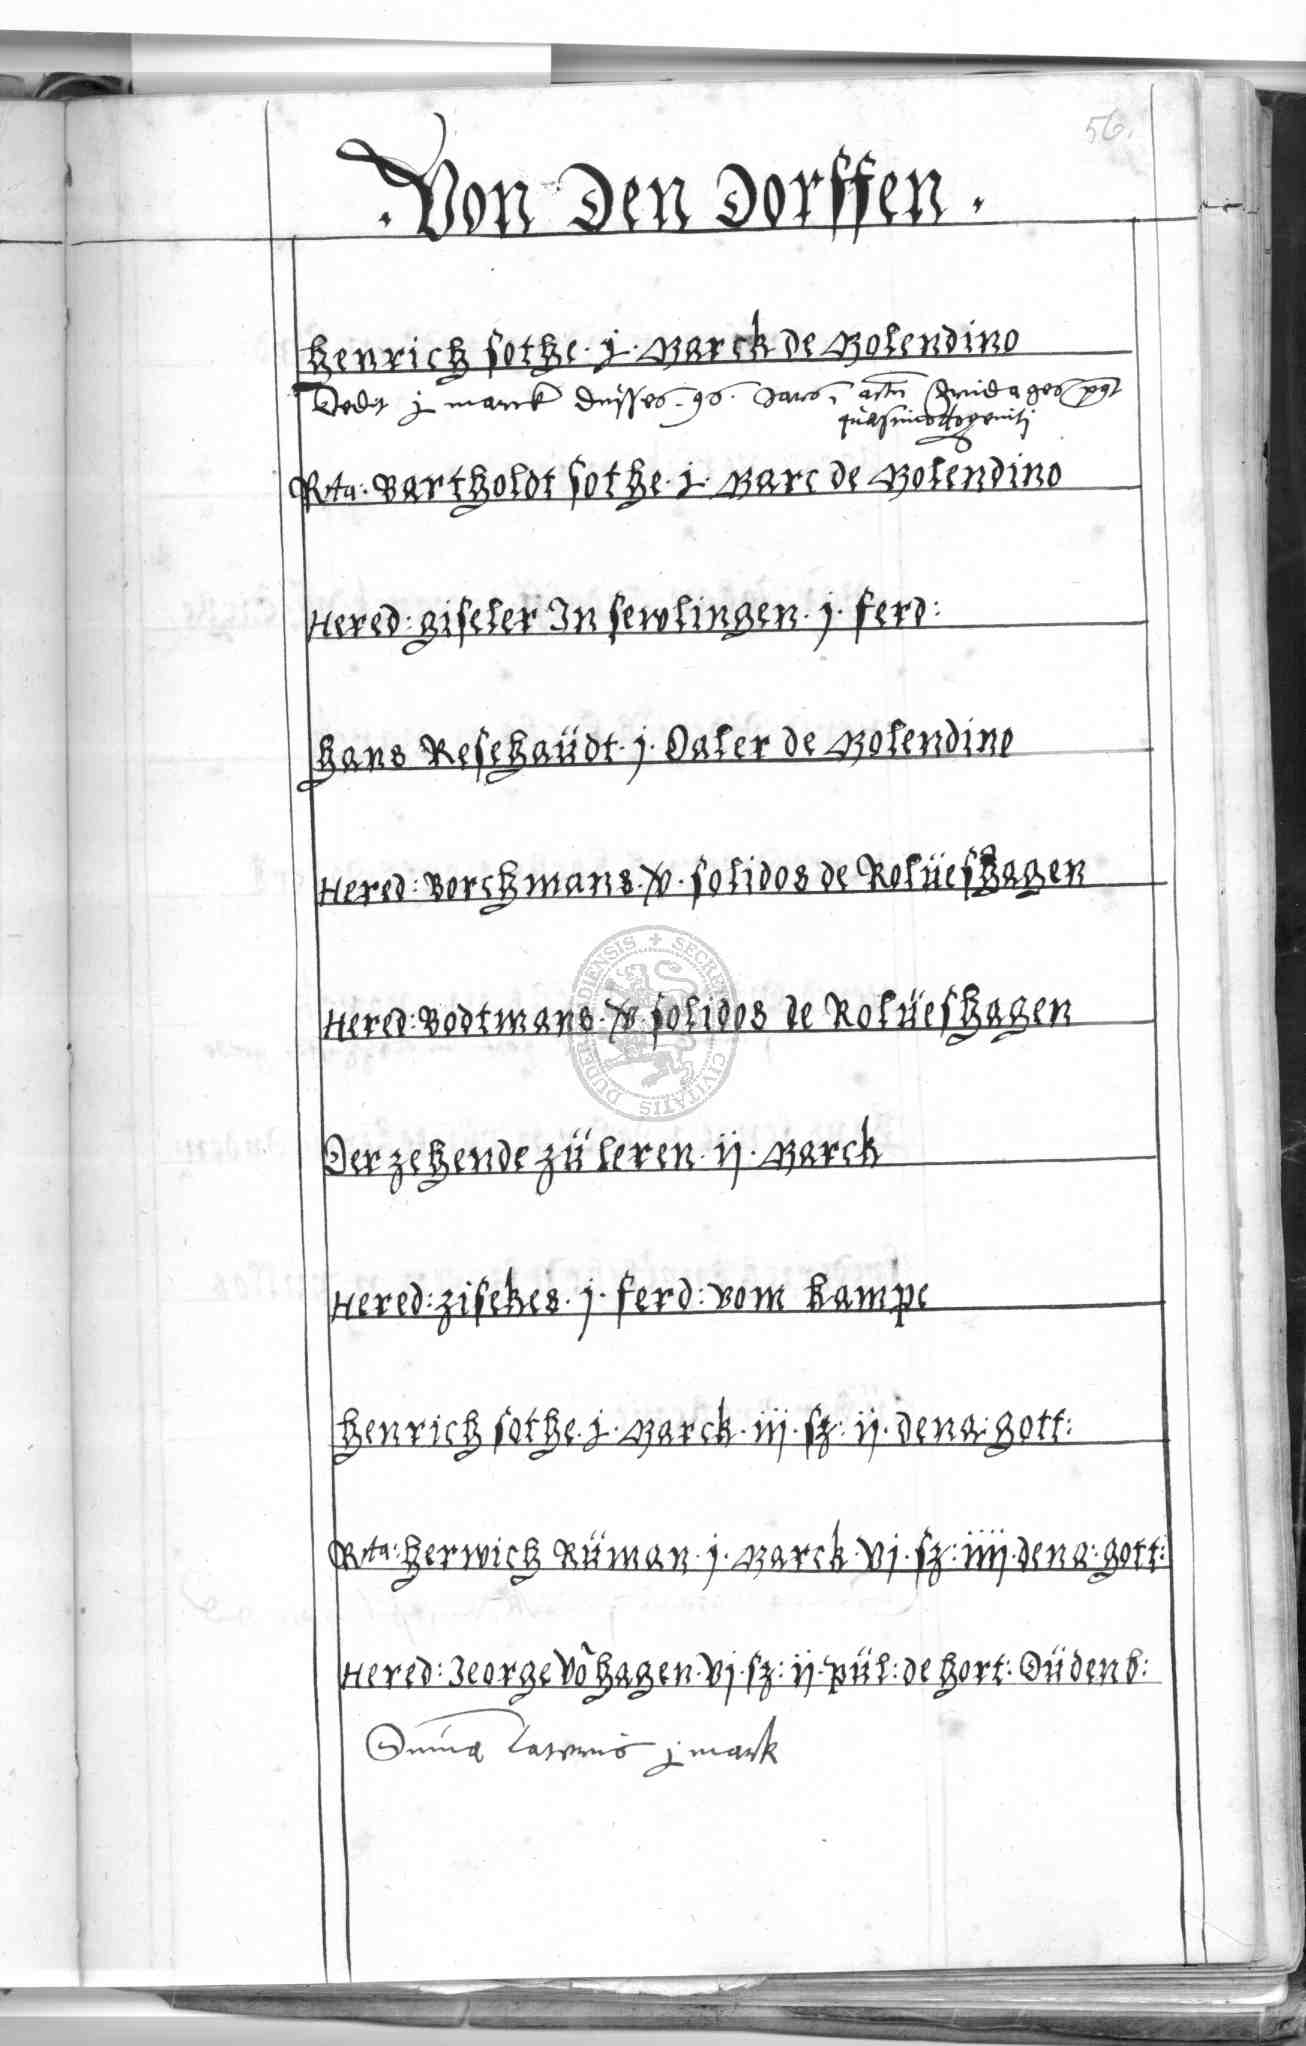 56.
. Von Den Dorffen .
Henrich Sothe . j . Marck de Molendino
Dedit j marck disses 96. Jars, actum Fridages post
quasimodogeniti
Rta: Bartholdt Sothe . j . Marc de Molendino
Hered: giseler In sewlingen . j . ferd:
Hans Resehaüdt . j . Daler de Molendino
Hered: Borchmans . xv . solidos de Rolüeshagen
Hered: Bodtmans . xv . solidos de Rolüeshagen
Der zehende zü leren . ij . Marck
Hered: zisekes . j . ferd: vom kampe
Henrich Sothe . j . Marck . iij . sz: ij . dena: gott:
Rta: Herwich Rüman . j . Marck . vj . sz: iiij . dena: gott:
Hered: Jeorge Võ Hagen . vj . sz: ij . pül: de hort: Düdenb:
Suma lateris j mark